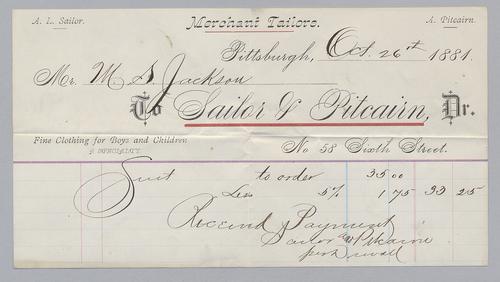 A. L. Sailor. Merchant Tailors. A. Pitcairn.
Pittsburgh, Oct. 26th 1881.
Mr. M S Jackson
To Sailor & Pitcairn, Dr.
Fine Clothing for Boys and Children No 58 Sixth Street.
A SPECIALTY.
Suit to order 35 00
Less 5% 1 75 33 25
Received Payment
Sailor & Pitcairn
per